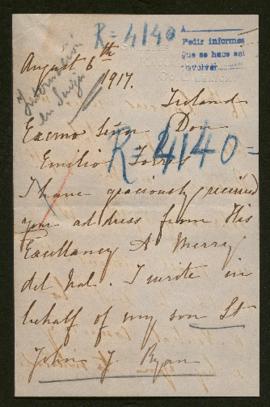 R=4140
Pedir informes
que se hace así
devolver
August 6th
1917.
Internados
en Suiza
Ireland
Excmo Señor Don
Emilio Torres
R=4140=
I have graciously received
your address from His
Excellancy A Merry
del Val. I write in
behalf of my son Lt
John J Ryan